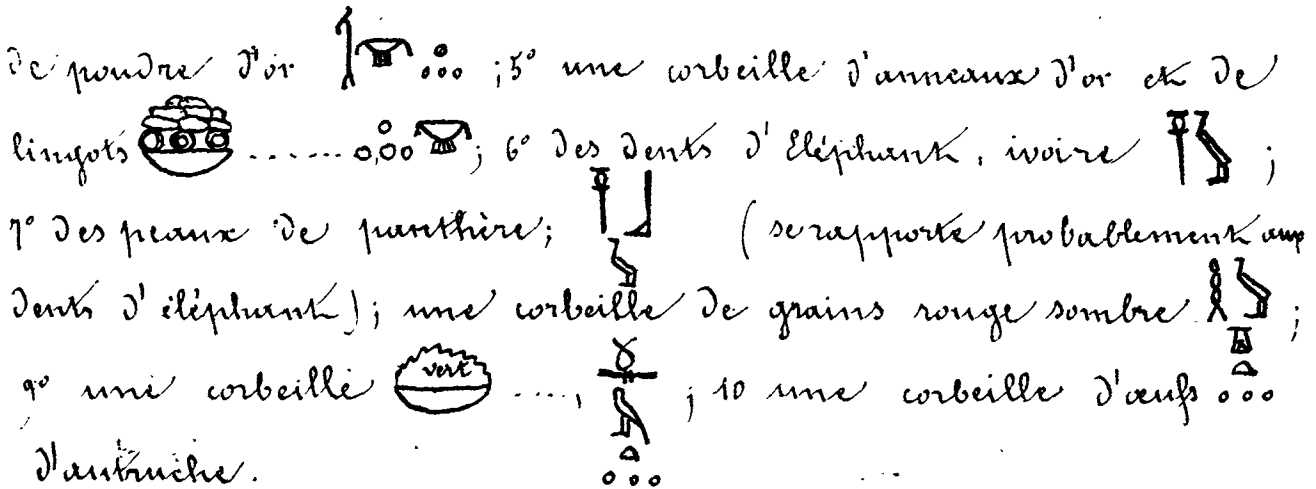 de poudre d'or ; 5° une corbeille d'anneaux d'or et de
lingots ........ ; 6° des dents d'Eléphant, ivoire ;
7° des peaux de panthère ; (se rapporte probablement aux
dents d'éléphant) ; une corbeille de grains rouge sombre ;
9° une corbeille vert ...., ; 10 une corbeille d'œufs
d'autruche.